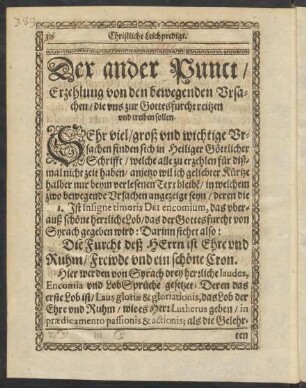 389
30 Christliche Leichpredigt.
Der ander Punct /
Erzehlung von den bewegenden Vrsa-
chen / die vns zur Gottesfurcht reitzen
vnd treiben sollen.
SEhr viel / groß vnd wichtige Vr-
sachen finden sich in Heiliger Göttlicher
Schrifft / welche alle zu erzehlen für diß-
mal nicht zeit haben / anietzo wil ich geliebter Kürtze
halber nur beym verlesenen Text bleibē / in welchem
zwo bewegende Vrsachen angezeiget seyn / deren die
1. Ist insigne timoris Dei encomium, das vber-
auß schöne herrliche Lob / das der Gottesfurcht von
Syrach gegeben wird: Darinn stehet also:
Die Furcht deß HErrn ist Ehre vnd
Ruhm / Frewde vnd ein schöne Cron.
Hier werden von Syrach drey herzliche laudes,
Encomia vnd Lob Sprüche gesetzet / Deren das
erste Lob ist / Laus gloriæ & gloriationis, das Lob der
Ehre vnd Ruhm / wie es Herr Lutherus geben / in
prædicamento passionis & actionis; als die Gelehr-
ten